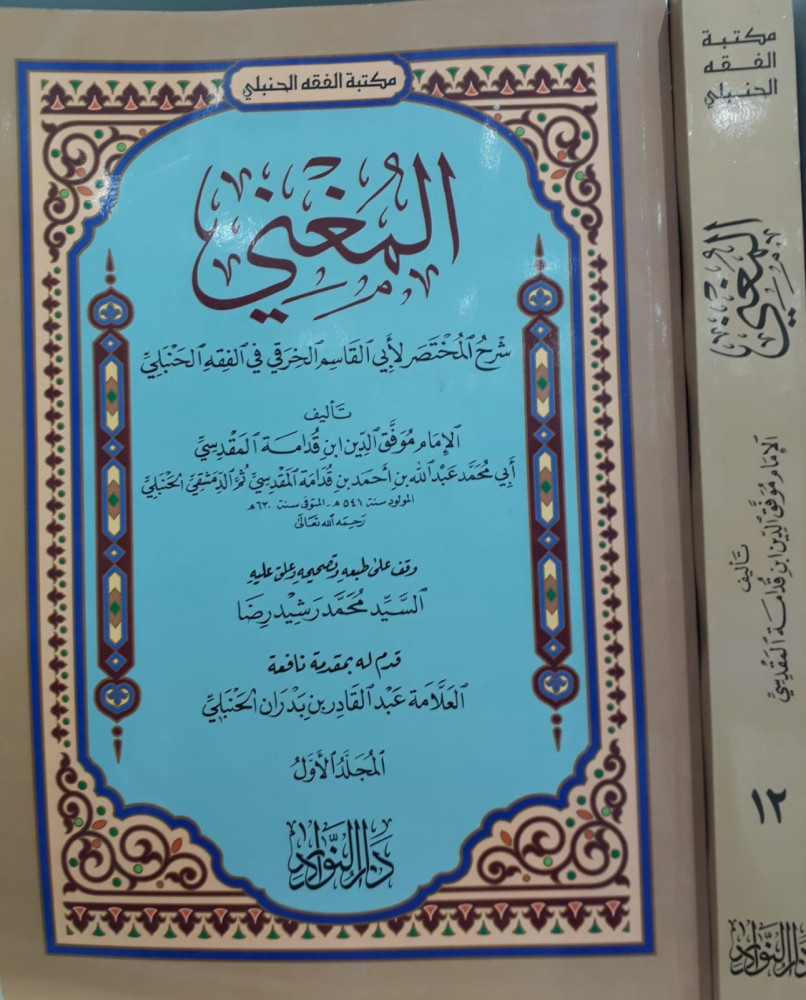 مكتبة الفقه الحنبلي
المُغني
شَرحُ المُختَصَر لأبي القَاسِم الخِرَقي في الفِقهِ الحَنبَليّ
تَأليف
الإمَام مُوَفَّق الدِّين ابن قُدَامَة المَقدِسِيّ
أَبي مُحَمَّد عَبد الله بن أَحمَد بن قُدَامَة المَقدِسِيّ ثُمَّ الدِّمَشقِيّ الحَنبَليّ
المولود سنة ٥٤١ هـ - المتوفى سنة ٦٢٠ هـ
رَحِمَهُ الله تعَالى
وقف على طبعه وتصحيحه وعلق عليه
السَّيِّد مُحَمَّد رَشِيد رِضَا
قدم له بمقدمة نافعة
العَلَّامَة عَبد القَادِر بن بَدرَان الحَنبَليّ
المُجَلَّد الأَوَّلُ
دَار النَّوادِر
مكتبة
الفقه
الحنبلي
المُغني
تَأليف
الإمَام مُوَفَّق الدِّين ابن قُدَامَة المَقدِسِيّ
١٢
دَار النَّوادِر